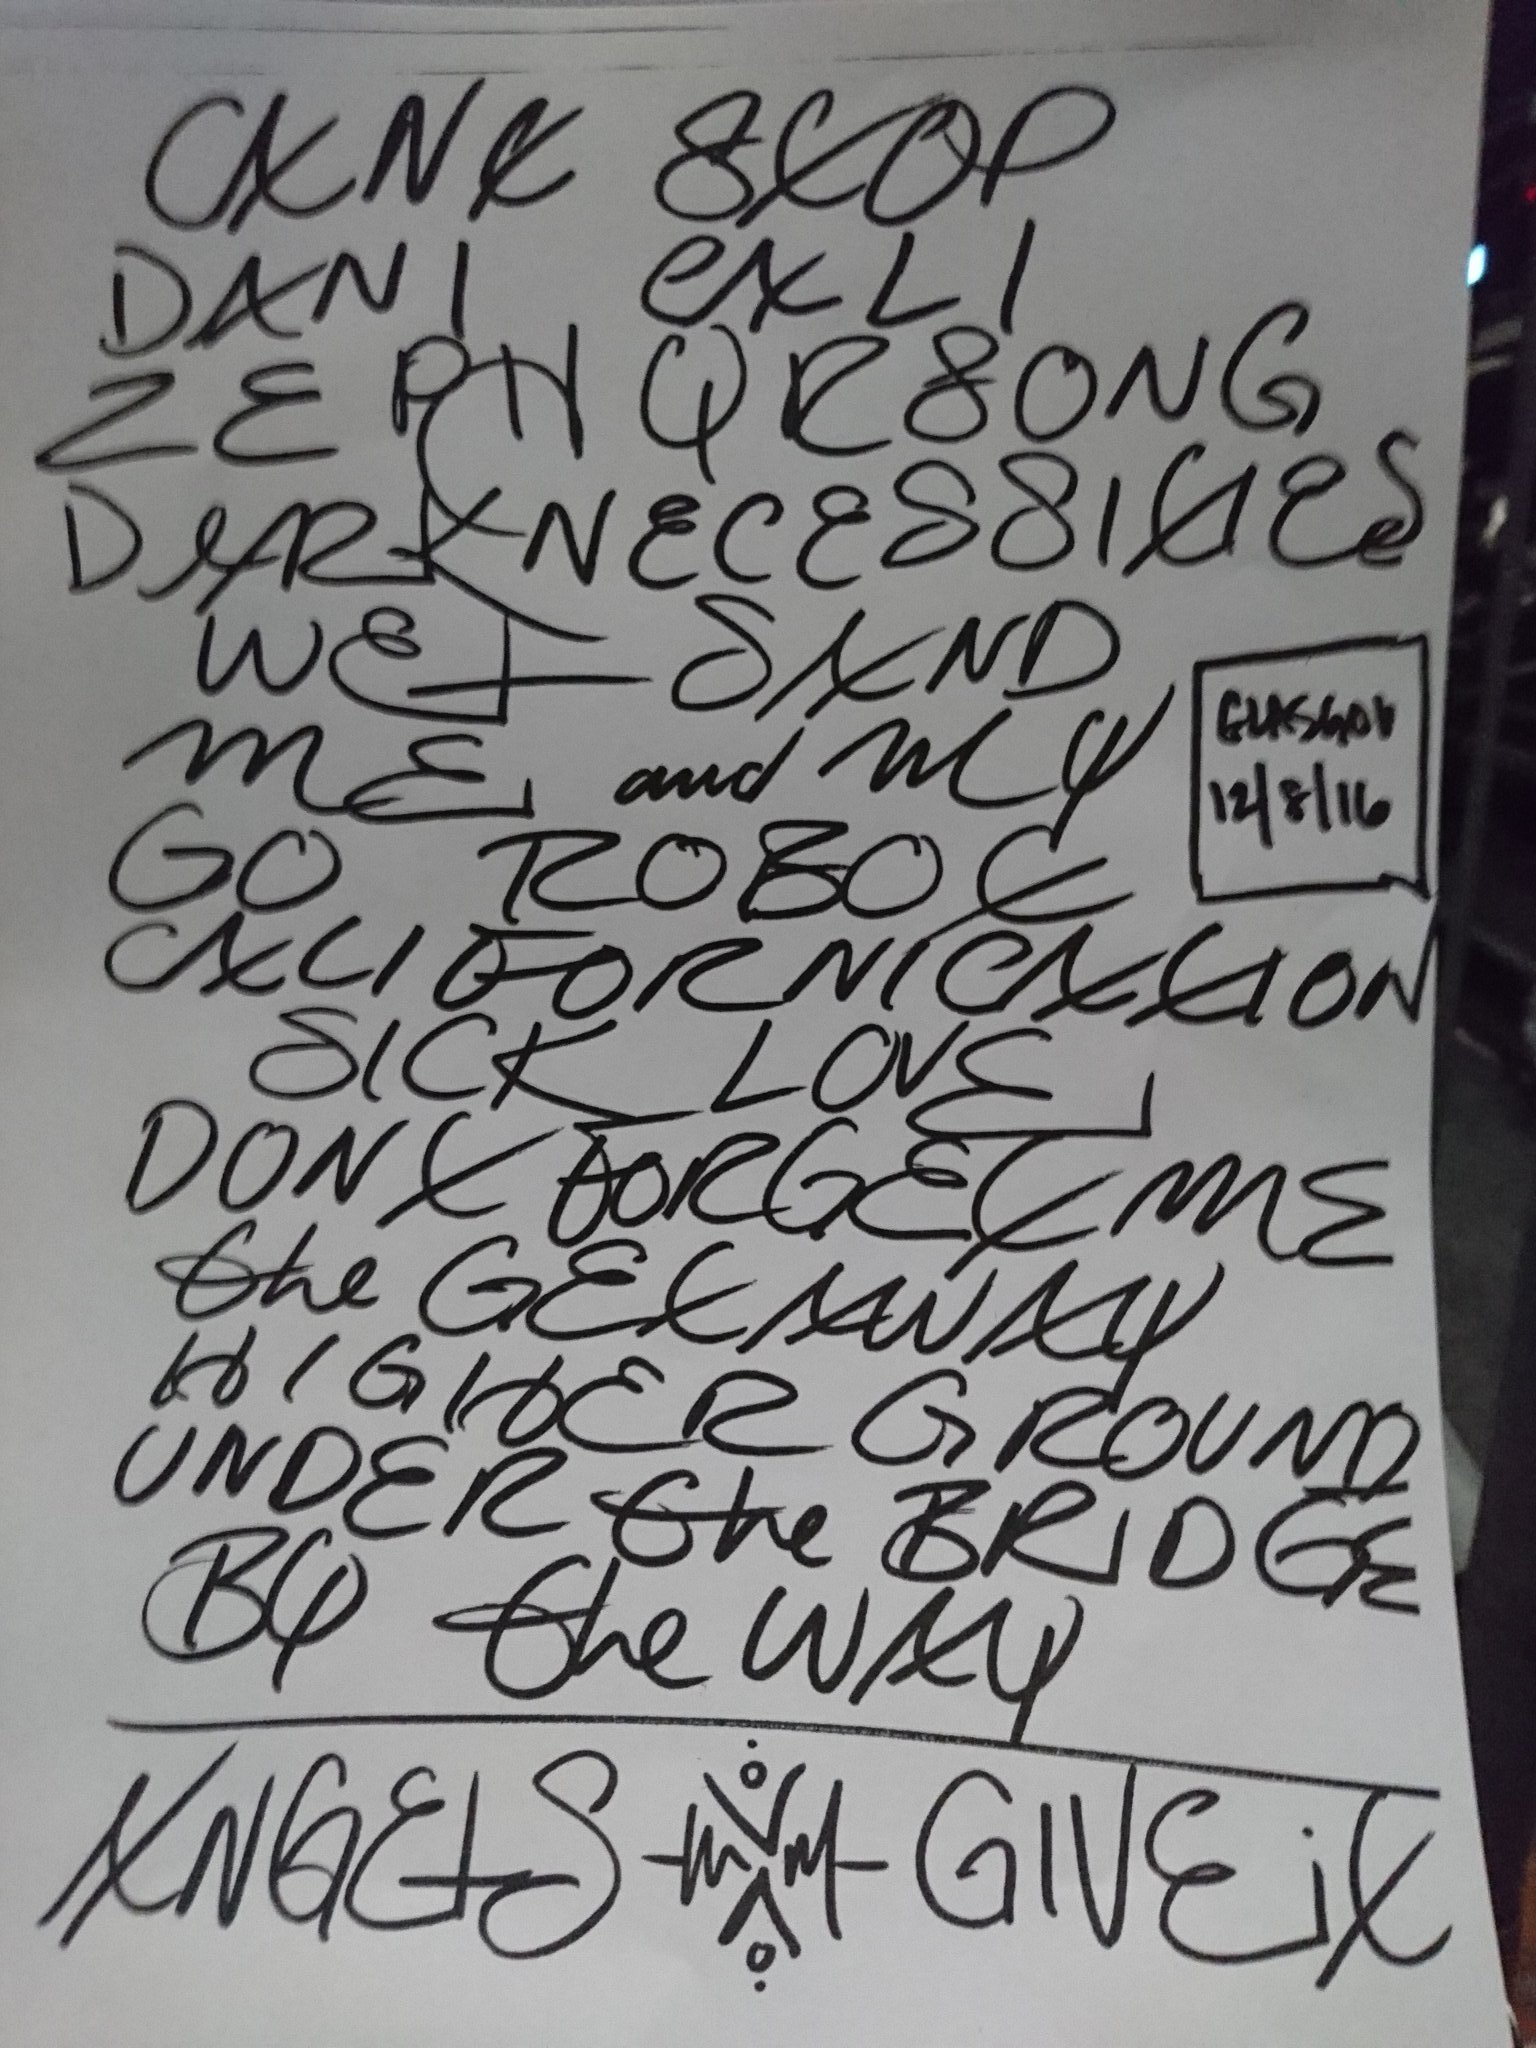 CAN'T STOP
DANI CALI
ZEPHYR SONG
DARK NECESSITIES
WET SAND
ME and MY
GLASGOW
12/8/16
GO ROBOT
CALIFORNICATION
SICK LOVE
DONT FORGET ME
the GETAWAY
HIGHER GROUND
UNDER the BRIDGE
BY the WAY
ANGELS GIVE iT